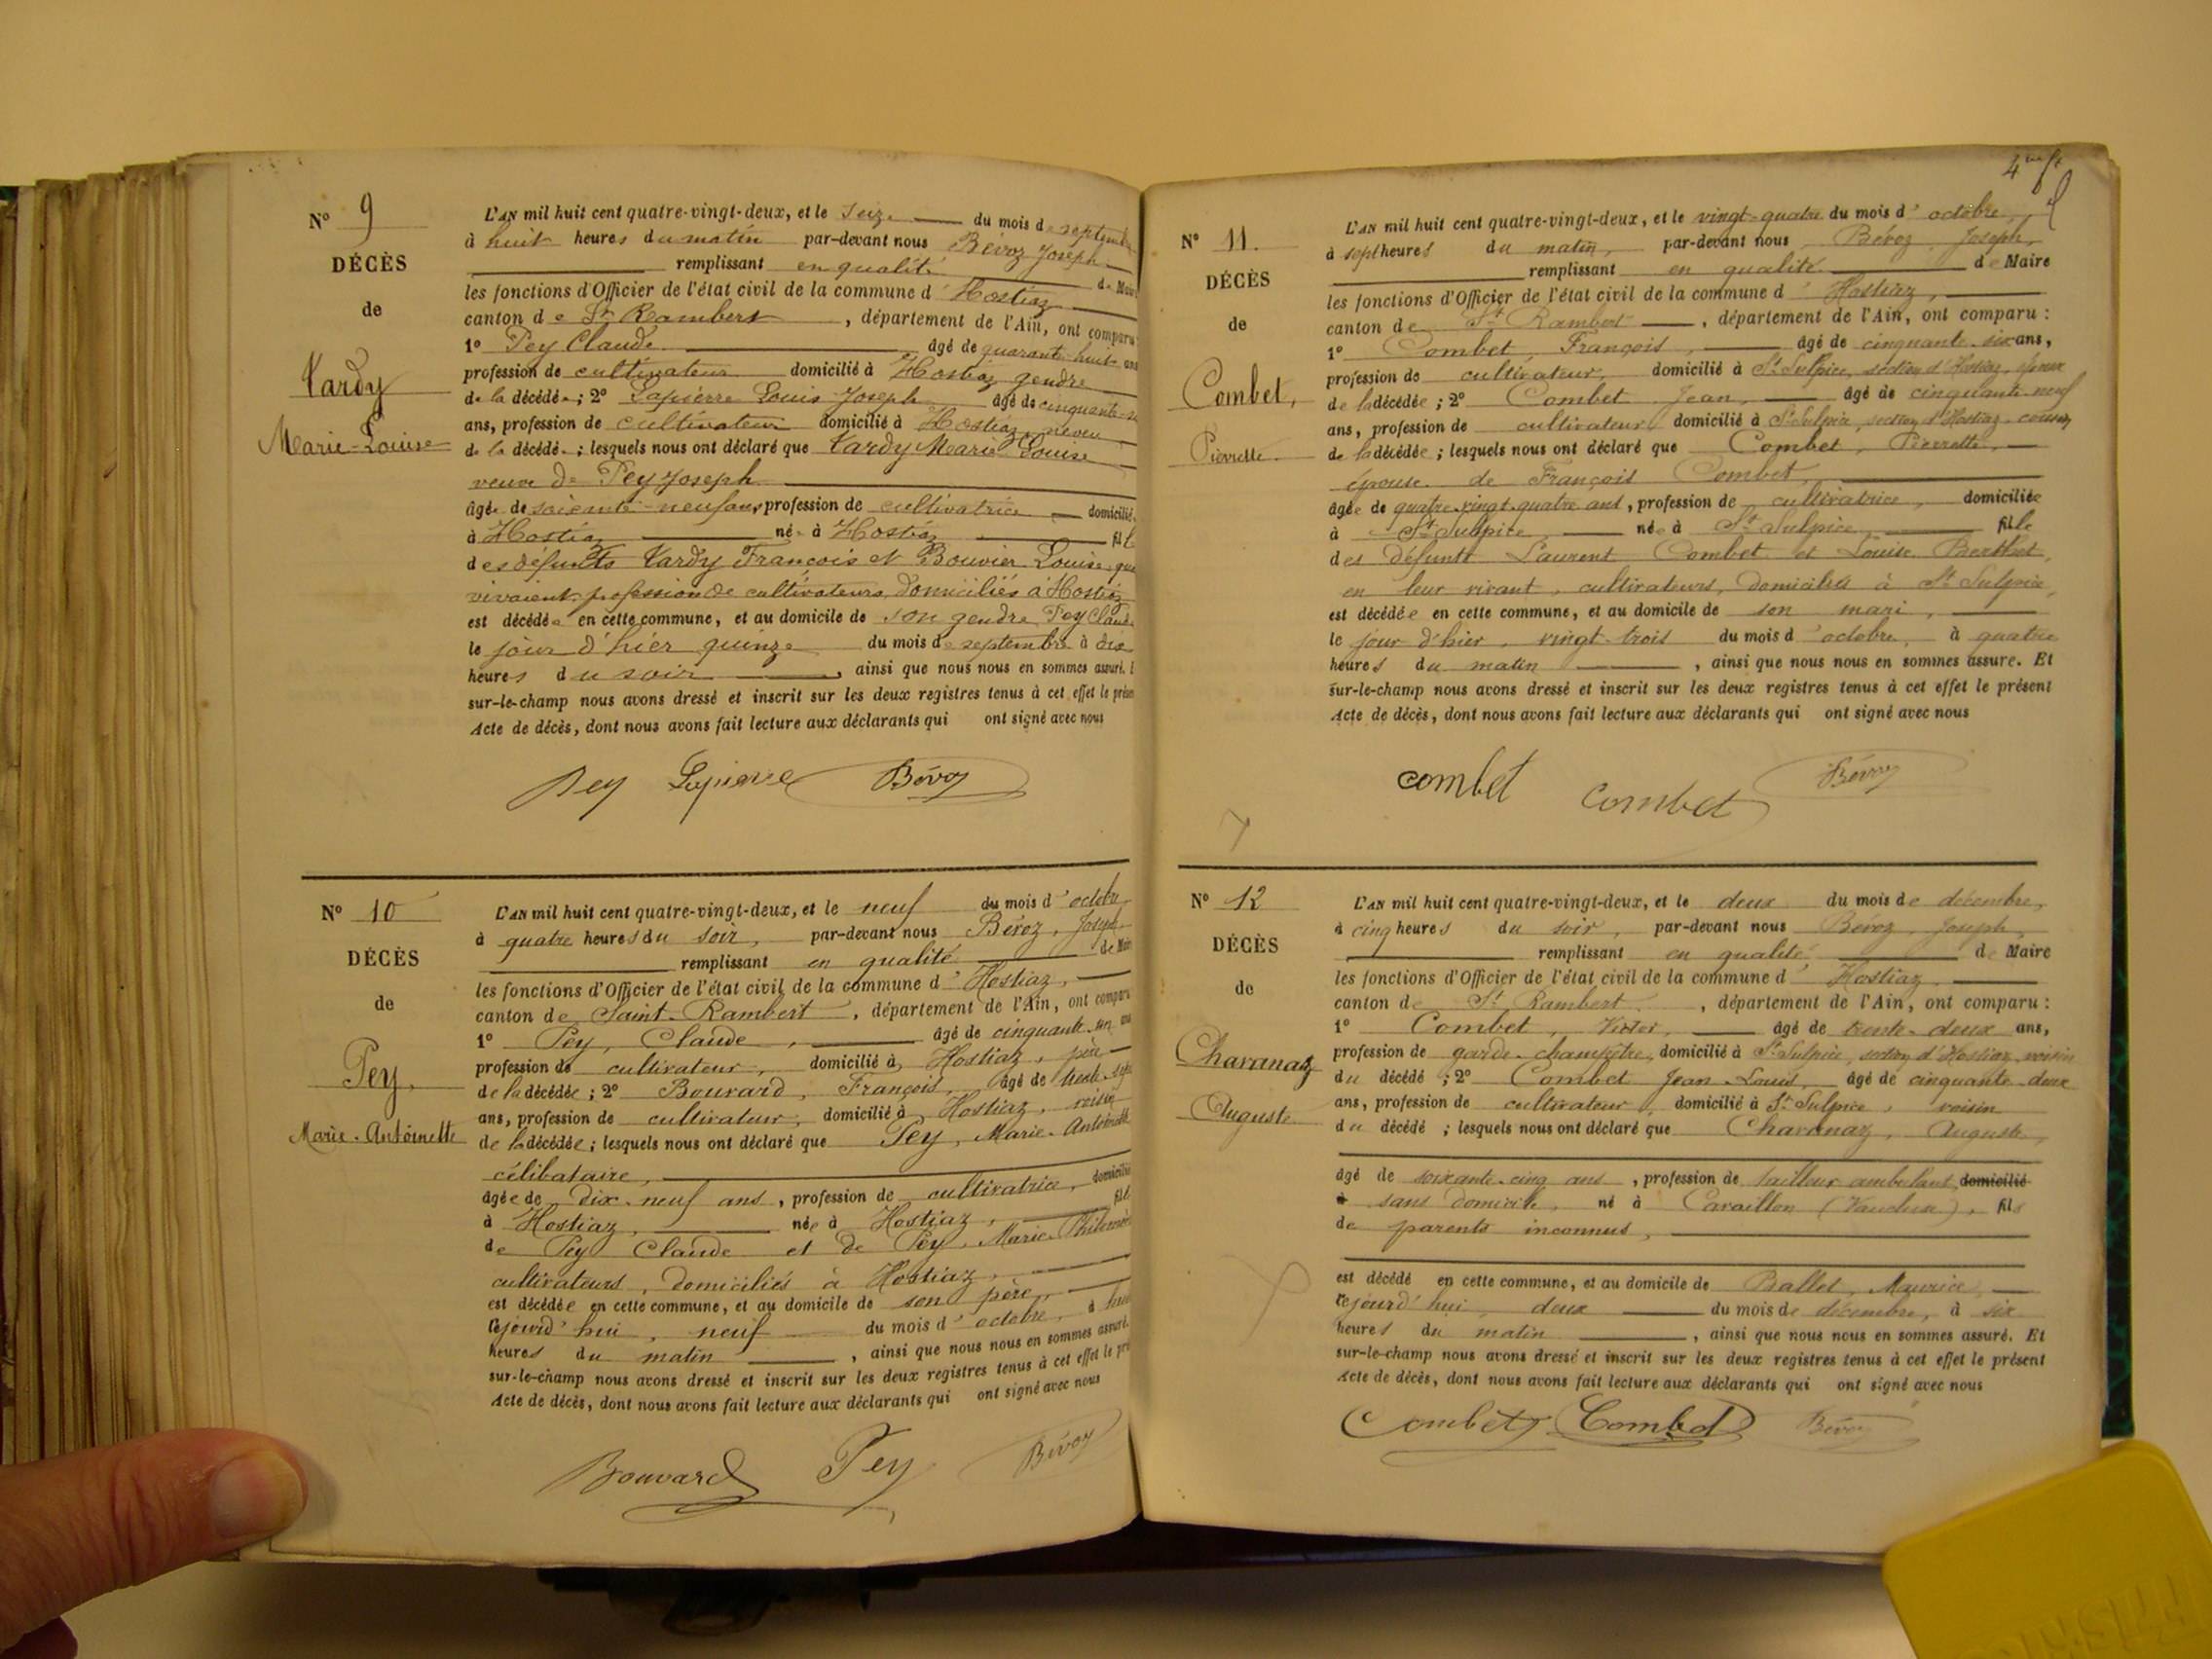 N° 9
DÉCÈS
de
Vardy
Marie-Louise
L'AN mil huit cent quatre-vingt-deux, et le seize du mois de septembre
à huit heures du matin par-devant nous Bévoz Joseph
remplissant en qualité de Maire
les fonctions d'Officier de l'état civil de la commune d'Hostiaz
canton de St Rambert, département de l'Ain, ont comparu
1° Pey Claude âgé de quarante-huit ans
profession de cultivateur domicilié à Hostiaz gendre
de la décédée; 2° Lapierre Louis Joseph âgé de cinquante
ans, profession de cultivateur domicilié à Hostiaz neveu
de la décédée; lesquels nous ont déclaré que Vardy Marie Louise
veuve de Pey Joseph
âgée de soixante-neuf ans, profession de cultivatrice domicilié
à Hostiaz née à Hostiaz fil
des défunts Vardy François et Bouvier Louise qui
vivaient profession de cultivateurs domiciliés à Hostiaz
est décédée en cette commune, et au domicile de son gendre Pey Claude
le jour d'hier quinze du mois de septembre à dix
heures du soir, ainsi que nous nous en sommes assuré.
sur-le-champ nous avons dressé et inscrit sur les deux registres tenus à cet effet le présen
Acte de décès, dont nous avons fait lecture aux déclarants qui ont signé avec nous
Pey Lapierre Bévoz
N° 10
DÉCÈS
de
Pey,
Marie-Antoinette
L'AN mil huit cent quatre-vingt-deux, et le neuf du mois d'octobre
à quatre heures du soir, par-devant nous Bévoz, Joseph
remplissant en qualité de Maire
les fonctions d'Officier de l'état civil de la commune d'Hostiaz,
canton de Saint-Rambert, département de l'Ain, ont comparu
1° Pey, Claude, âgé de cinquante-un ans
profession de cultivateur, domicilié à Hostiaz, père
de la décédée; 2° Bouvard, François, âgé de trente-sept
ans, profession de cultivateur, domicilié à Hostiaz, voisin
de la décédée; lesquels nous ont déclaré que Pey, Marie-Antoinette
célibataire,
âgée de dix-neuf ans, profession de cultivatrice, domiciliée
à Hostiaz, née à Hostiaz, fil
de Pey Claude et de Pey, Marie-Philomène
cultivateurs, domiciliés à Hostiaz,
est décédée en cette commune, et au domicile de son père,
cejourd'hui, neuf du mois d'octobre, à huit
heures du matin, ainsi que nous nous en sommes assuré.
sur-le-champ nous avons dressé et inscrit sur les deux registres tenus à cet effet le pré
Acte de décès, dont nous avons fait lecture aux déclarants qui ont signé avec nous
Bouvard Pey Bévoz
4
N° 11.
DÉCÈS
de
Combet,
Pierrette
L'AN mil huit cent quatre-vingt-deux, et le vingt-quatre du mois d'octobre,
à sept heures du matin, par-devant nous Bévoz, Joseph,
remplissant en qualité de Maire
les fonctions d'Officier de l'état civil de la commune d'Hostiaz,
canton de St Rambert, département de l'Ain, ont comparu :
1° Combet, François, âgé de cinquante-six ans,
profession de cultivateur, domicilié à St Sulpice, section d'Hostiaz, époux
de la décédée; 2° Combet Jean, âgé de cinquante-neuf
ans, profession de cultivateur, domicilié à St Sulpice, section d'Hostiaz, cousin
de la décédée; lesquels nous ont déclaré que Combet, Pierrette,
épouse de François Combet,
âgée de quatre-vingt-quatre ans, profession de cultivatrice, domiciliée
à St Sulpice, née à St Sulpice, fille
des défunts Laurent Combet et Louise Berthet,
en leur vivant, cultivateurs, domiciliés à St Sulpice,
est décédée en cette commune, et au domicile de son mari,
le jour d'hier, vingt-trois du mois d'octobre, à quatre
heures du matin, ainsi que nous nous en sommes assuré. Et
sur-le-champ nous avons dressé et inscrit sur les deux registres tenus à cet effet le présent
Acte de décès, dont nous avons fait lecture aux déclarants qui ont signé avec nous
combet combet Bévoz
N° 12
DÉCÈS
de
Chavanaz
Auguste
L'AN mil huit cent quatre-vingt-deux, et le deux du mois de décembre,
à cinq heures du soir, par-devant nous Bévoz, Joseph,
remplissant en qualité de Maire
les fonctions d'Officier de l'état civil de la commune d'Hostiaz
canton de St Rambert, département de l'Ain, ont comparu :
1° Combet, Victor, âgé de trente-deux ans,
profession de garde-champêtre, domicilié à St Sulpice, section d'Hostiaz, voisin
du décédé; 2° Combet Jean-Louis, âgé de cinquante-deux
ans, profession de cultivateur, domicilié à St Sulpice, voisin
du décédé; lesquels nous ont déclaré que Chavanaz, Auguste,
âgé de soixante-cinq ans, profession de tailleur ambulant, domicilié
à sans domicile, né à Cavaillon (Vaucluse), fils
de parents inconnus,
est décédé en cette commune, et au domicile de Ballet, Maurice,
cejourd'hui, deux du mois de décembre, à six
heures du matin, ainsi que nous nous en sommes assuré. Et
sur-le-champ nous avons dressé et inscrit sur les deux registres tenus à cet effet le présent
Acte de décès, dont nous avons fait lecture aux déclarants qui ont signé avec nous
Combet Combet Bévoz